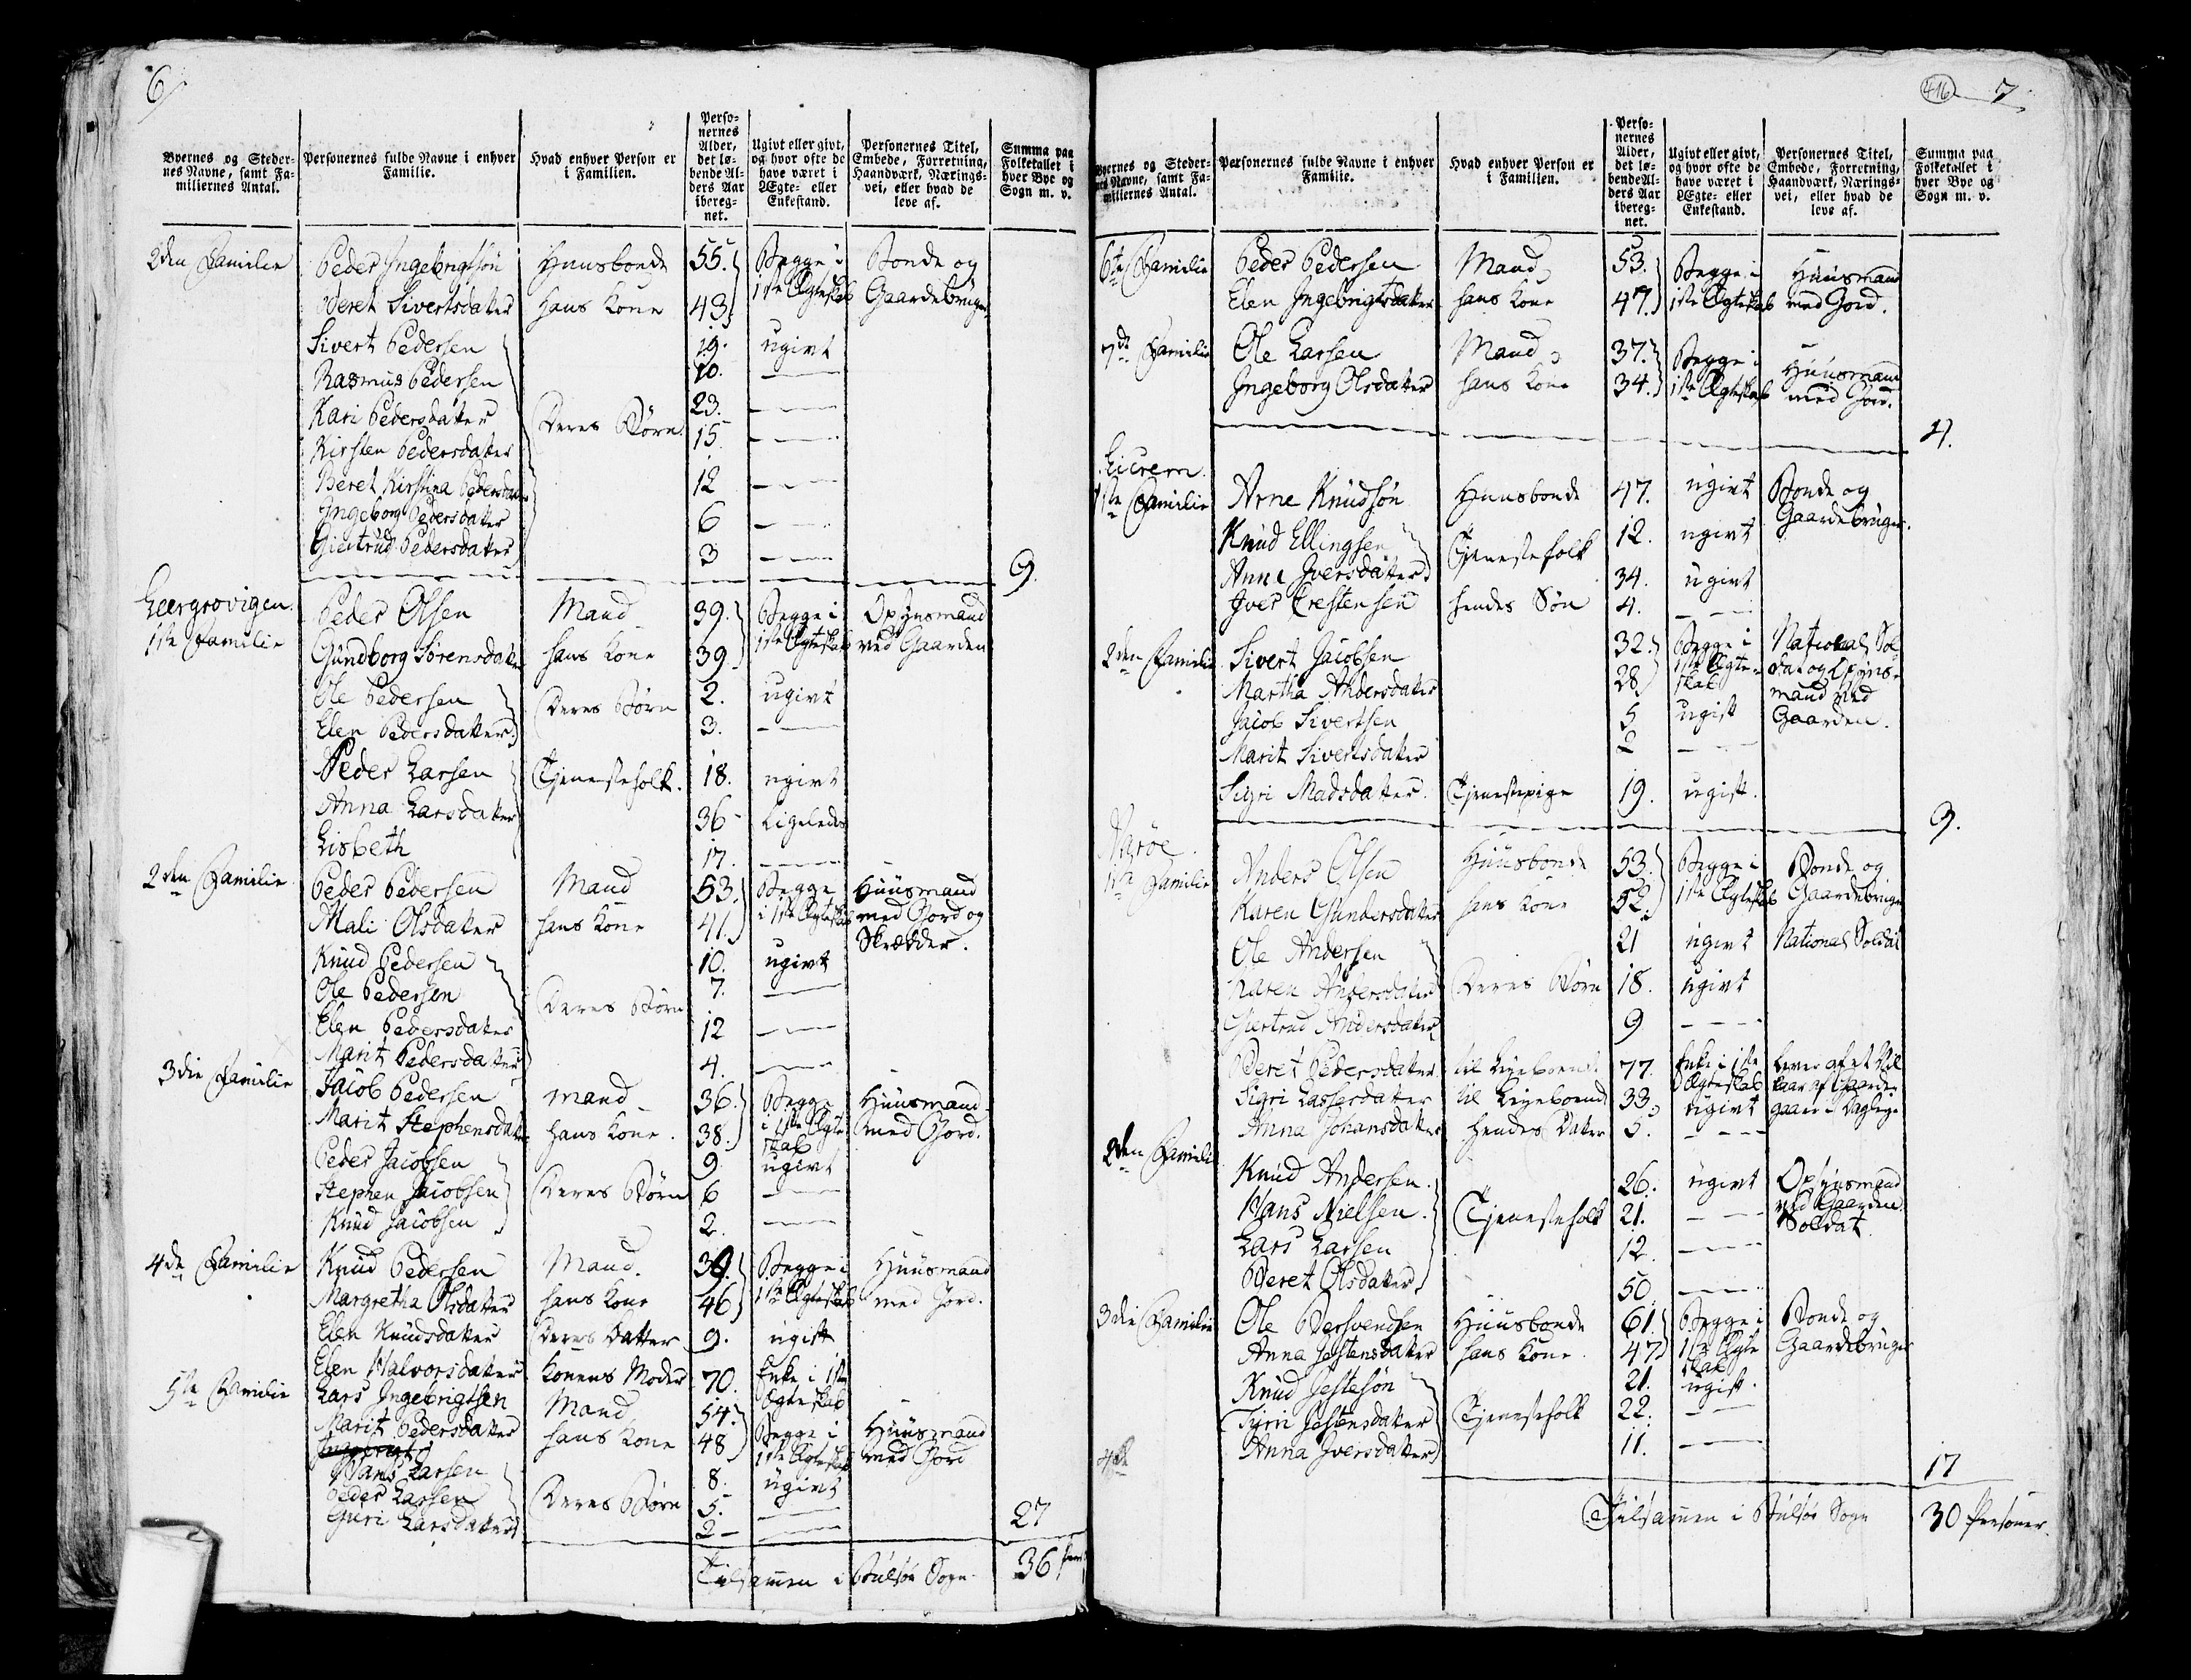 6
Byernes og Steder-
nes Navne, samt Fa-
miliernes Antal.
Personernes fulde Navne i enhver
Familie.
Hvad enhver Person er
i Familien.
Perso-
nernes
Alder,
det lø-
bende Al-
ders Aar
ibereg-
net.
Ugivt eller givt,
og hvor ofte de
have været i
Ægte- eller
Enkestand.
Personernes Titel,
Embede, Forretning,
Haandværk, Nærings-
vei, eller hvad de
leve af.
Summa paa
Folketallet i
hver Bye og
Sogn m. v.
2den Familie Peder Ingebrigtsøn Huusbonde 55. Begge i Bonde og
Beret Sivertsdatter hans Kone 43. 1ste Ægteskab Gaardebruger
Sivert Pedersen 19. ugivt
Rasmus Pedersen 10.
Kari Pedersdatter 23.
Deres Børn
Kirsten Pedersdatter 15.
Beret Kirstina Pedersdatter 12
Ingeborg Pedersdatter 6
Giertrud Pedersdatter 3
9.
Leergrovigen.
1ste Familie
Peder Olsen Mand 39. Begge i Opsynsmand
Gundborg Sørensdatter hans Kone 39. 1ste Ægteskab ved Gaarden
Ole Pedersen Deres Børn 2. ugivt
Elen Pedersdatter 3.
Peder Larsen Tjenestefolk. 18. ugivt
Anna Larsdatter 36 Ligeledes
Lisbeth 17.
2den Familie Peder Pedersen Mand 53. Begge Huusmand
Mali Olsdatter hans Kone 41. i 1ste Ægteskab med Jord og
Skrædder.
Knud Pedersen 10. ugivt
Ole Pedersen 7.
Deres Børn
Elen Pedersdatter 12
Marit Pedersdatter 4.
3die Familie Jacob Pedersen Mand 36. Begge Huusmand
Marit Stephensdatter hans Kone. 38. i 1ste Ægte- med Jord.
skab
Peder Jacobsen 9. ugivt
Stephen Jacobsen Deres Børn 6
Knud Jacobsen 2.
4de Familie Knud Pedersen Mand. 39. Begge i Huusmand
Margretha Olsdatter hans Kone 46 1ste Ægteskab med Jord.
Elen Knudsdatter Deres Datter 9. ugift
Elen Halvorsdatter Konens Moder 70. Enke i 1ste
Ægteskab
5te Familie Lars Ingebrigtsen Mand 54. Begge i Huusmand
Marit Pedersdatter hans Kone 48 1ste Ægteskab med Jord
Hans Larsen 8. ugivt
Peder Larsen Deres Børn 5.
Guri Larsdatter 2
27
Tilsammen i Bulsøe Sogn 36
416 7
Byernes og Steder-
nes Navne, samt Fa-
miliernes Antal.
Personernes fulde Navne i enhver
Familie.
Hvad enhver Person er
i Familien.
Perso-
nernes
Alder,
det lø-
bende Al-
ders Aar
ibereg-
net.
Ugivt eller givt,
og hvor ofte de
have været i
Ægte- eller
Enkestand.
Personernes Titel,
Embede, Forretning,
Haandværk, Nærings-
vei, eller hvad de
leve af.
Summa paa
Folketallet i
hver Bye og
Sogn m. v.
6te Familie Peder Pedersen Mand 53. Begge i Huusmand
Elen Ingebrigtsdatter hans Kone 47. 1ste Ægteskab med Jord.
7de Familie Ole Larsen Mand 37. Begge i Huusmand
Ingeborg Olsdatter hans Kone 34. 1ste Ægteskab med Jord.
4.
1ste Familie Arne Knudsøn Huusbonde 47. ugivt Bonde og
Gaardebruger.
Knud Ellingsen Tjenestefolk 12. ugivt
Anne Iversdatter 34. ugivt
Iver Crestensen hendes Søn 4.
2den Familie Sivert Jacobsen 32. Begge i National Sol-
Martha Andersdatter 28 1ste Ægte- dat og Opsyns-
skab mand ved
Jacob Sivertsen 5 ugift Gaarden.
Marit Sivertsdatter 2
Sigri Madsdatter Tjenestepige 19. ugift.
9.
1ste Familie Anders Olsen Huusbonde 53. Begge i Bonde og
Karen Gundersdatter hans Kone 52. 1ste Ægteskab Gaardebruger
Ole Andersen 21 ugivt National Soldat
Karen Andersdatter Deres Børn 18. ugivt
Giertrud Andersdatter 9
Beret Pedersdatter til Leyeboende 77. Enke i 1ste lever af et Vil-
Ægteskab kaar af Gaarden
Sigri Lassesdatter til Leyeboende 33. ugivt gaaer i Dagleye
Anna Johansdatter hendes Datter 5.
2den Familie Knud Andersen. 26. ugivt Opsynsmand
ved Gaarden
Hans Nielsen. Tjenestefolk 21. Soldat
Lars Larsen 12.
Beret Olsdatter 50.
3die Familie Ole Bersvendsen Huusbonde 61. Begge i Bonde og
Anna Jestensdatter hans Kone. 47. 1ste Ægte Gaardebruger
skab
Knud Jestesøn 21. ugift.
Sigri Jestensdatter Tjenestefolk 22.
Anna Iversdatter 11.
4de
17
Tilsammen i Bulsøe Sogn 30 Personer.